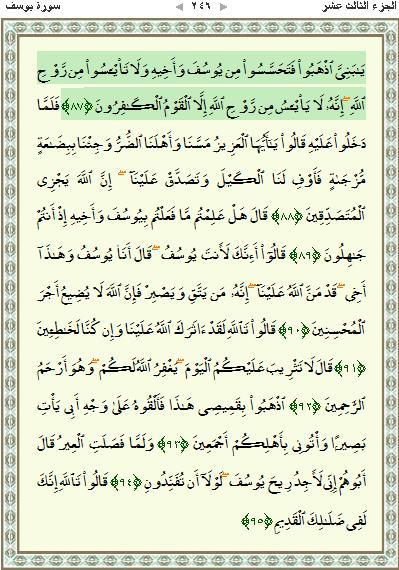 الجزء الثالث عشر ٢٤٦ سورة يوسف
يَـٰبَنِىَّ ٱذْهَبُوا۟ فَتَحَسَّسُوا۟ مِن يُوسُفَ وَأَخِيهِ وَلَا تَا۟يْـَٔسُوا۟ مِن رَّوْحِ
ٱللَّهِ ۖ إِنَّهُۥ لَا يَا۟يْـَٔسُ مِن رَّوْحِ ٱللَّهِ إِلَّا ٱلْقَوْمُ ٱلْكَـٰفِرُونَ ﴿٨٧﴾ فَلَمَّا
دَخَلُوا۟ عَلَيْهِ قَالُوا۟ يَـٰٓأَيُّهَا ٱلْعَزِيزُ مَسَّنَا وَأَهْلَنَا ٱلضُّرُّ وَجِئْنَا بِبِضَـٰعَةٍ
مُّزْجَىٰةٍ فَأَوْفِ لَنَا ٱلْكَيْلَ وَتَصَدَّقْ عَلَيْنَآ ۖ إِنَّ ٱللَّهَ يَجْزِى
ٱلْمُتَصَدِّقِينَ ﴿٨٨﴾ قَالَ هَلْ عَلِمْتُم مَّا فَعَلْتُم بِيُوسُفَ وَأَخِيهِ إِذْ أَنتُمْ
جَـٰهِلُونَ ﴿٨٩﴾ قَالُوٓا۟ أَءِنَّكَ لَأَنتَ يُوسُفُ ۖ قَالَ أَنَا۠ يُوسُفُ وَهَـٰذَآ
أَخِى ۖ قَدْ مَنَّ ٱللَّهُ عَلَيْنَآ ۖ إِنَّهُۥ مَن يَتَّقِ وَيَصْبِرْ فَإِنَّ ٱللَّهَ لَا يُضِيعُ أَجْرَ
ٱلْمُحْسِنِينَ ﴿٩٠﴾ قَالُوا۟ تَٱللَّهِ لَقَدْ ءَاثَرَكَ ٱللَّهُ عَلَيْنَا وَإِن كُنَّا لَخَـٰطِـِٔينَ
﴿٩١﴾ قَالَ لَا تَثْرِيبَ عَلَيْكُمُ ٱلْيَوْمَ ۖ يَغْفِرُ ٱللَّهُ لَكُمْ ۖ وَهُوَ أَرْحَمُ
ٱلرَّٰحِمِينَ ﴿٩٢﴾ ٱذْهَبُوا۟ بِقَمِيصِى هَـٰذَا فَأَلْقُوهُ عَلَىٰ وَجْهِ أَبِى يَأْتِ
بَصِيرًا وَأْتُونِى بِأَهْلِكُمْ أَجْمَعِينَ ﴿٩٣﴾ وَلَمَّا فَصَلَتِ ٱلْعِيرُ قَالَ
أَبُوهُمْ إِنِّى لَأَجِدُ رِيحَ يُوسُفَ ۖ لَوْلَآ أَن تُفَنِّدُونِ ﴿٩٤﴾ قَالُوا۟ تَٱللَّهِ إِنَّكَ
لَفِى ضَلَـٰلِكَ ٱلْقَدِيمِ ﴿٩٥﴾